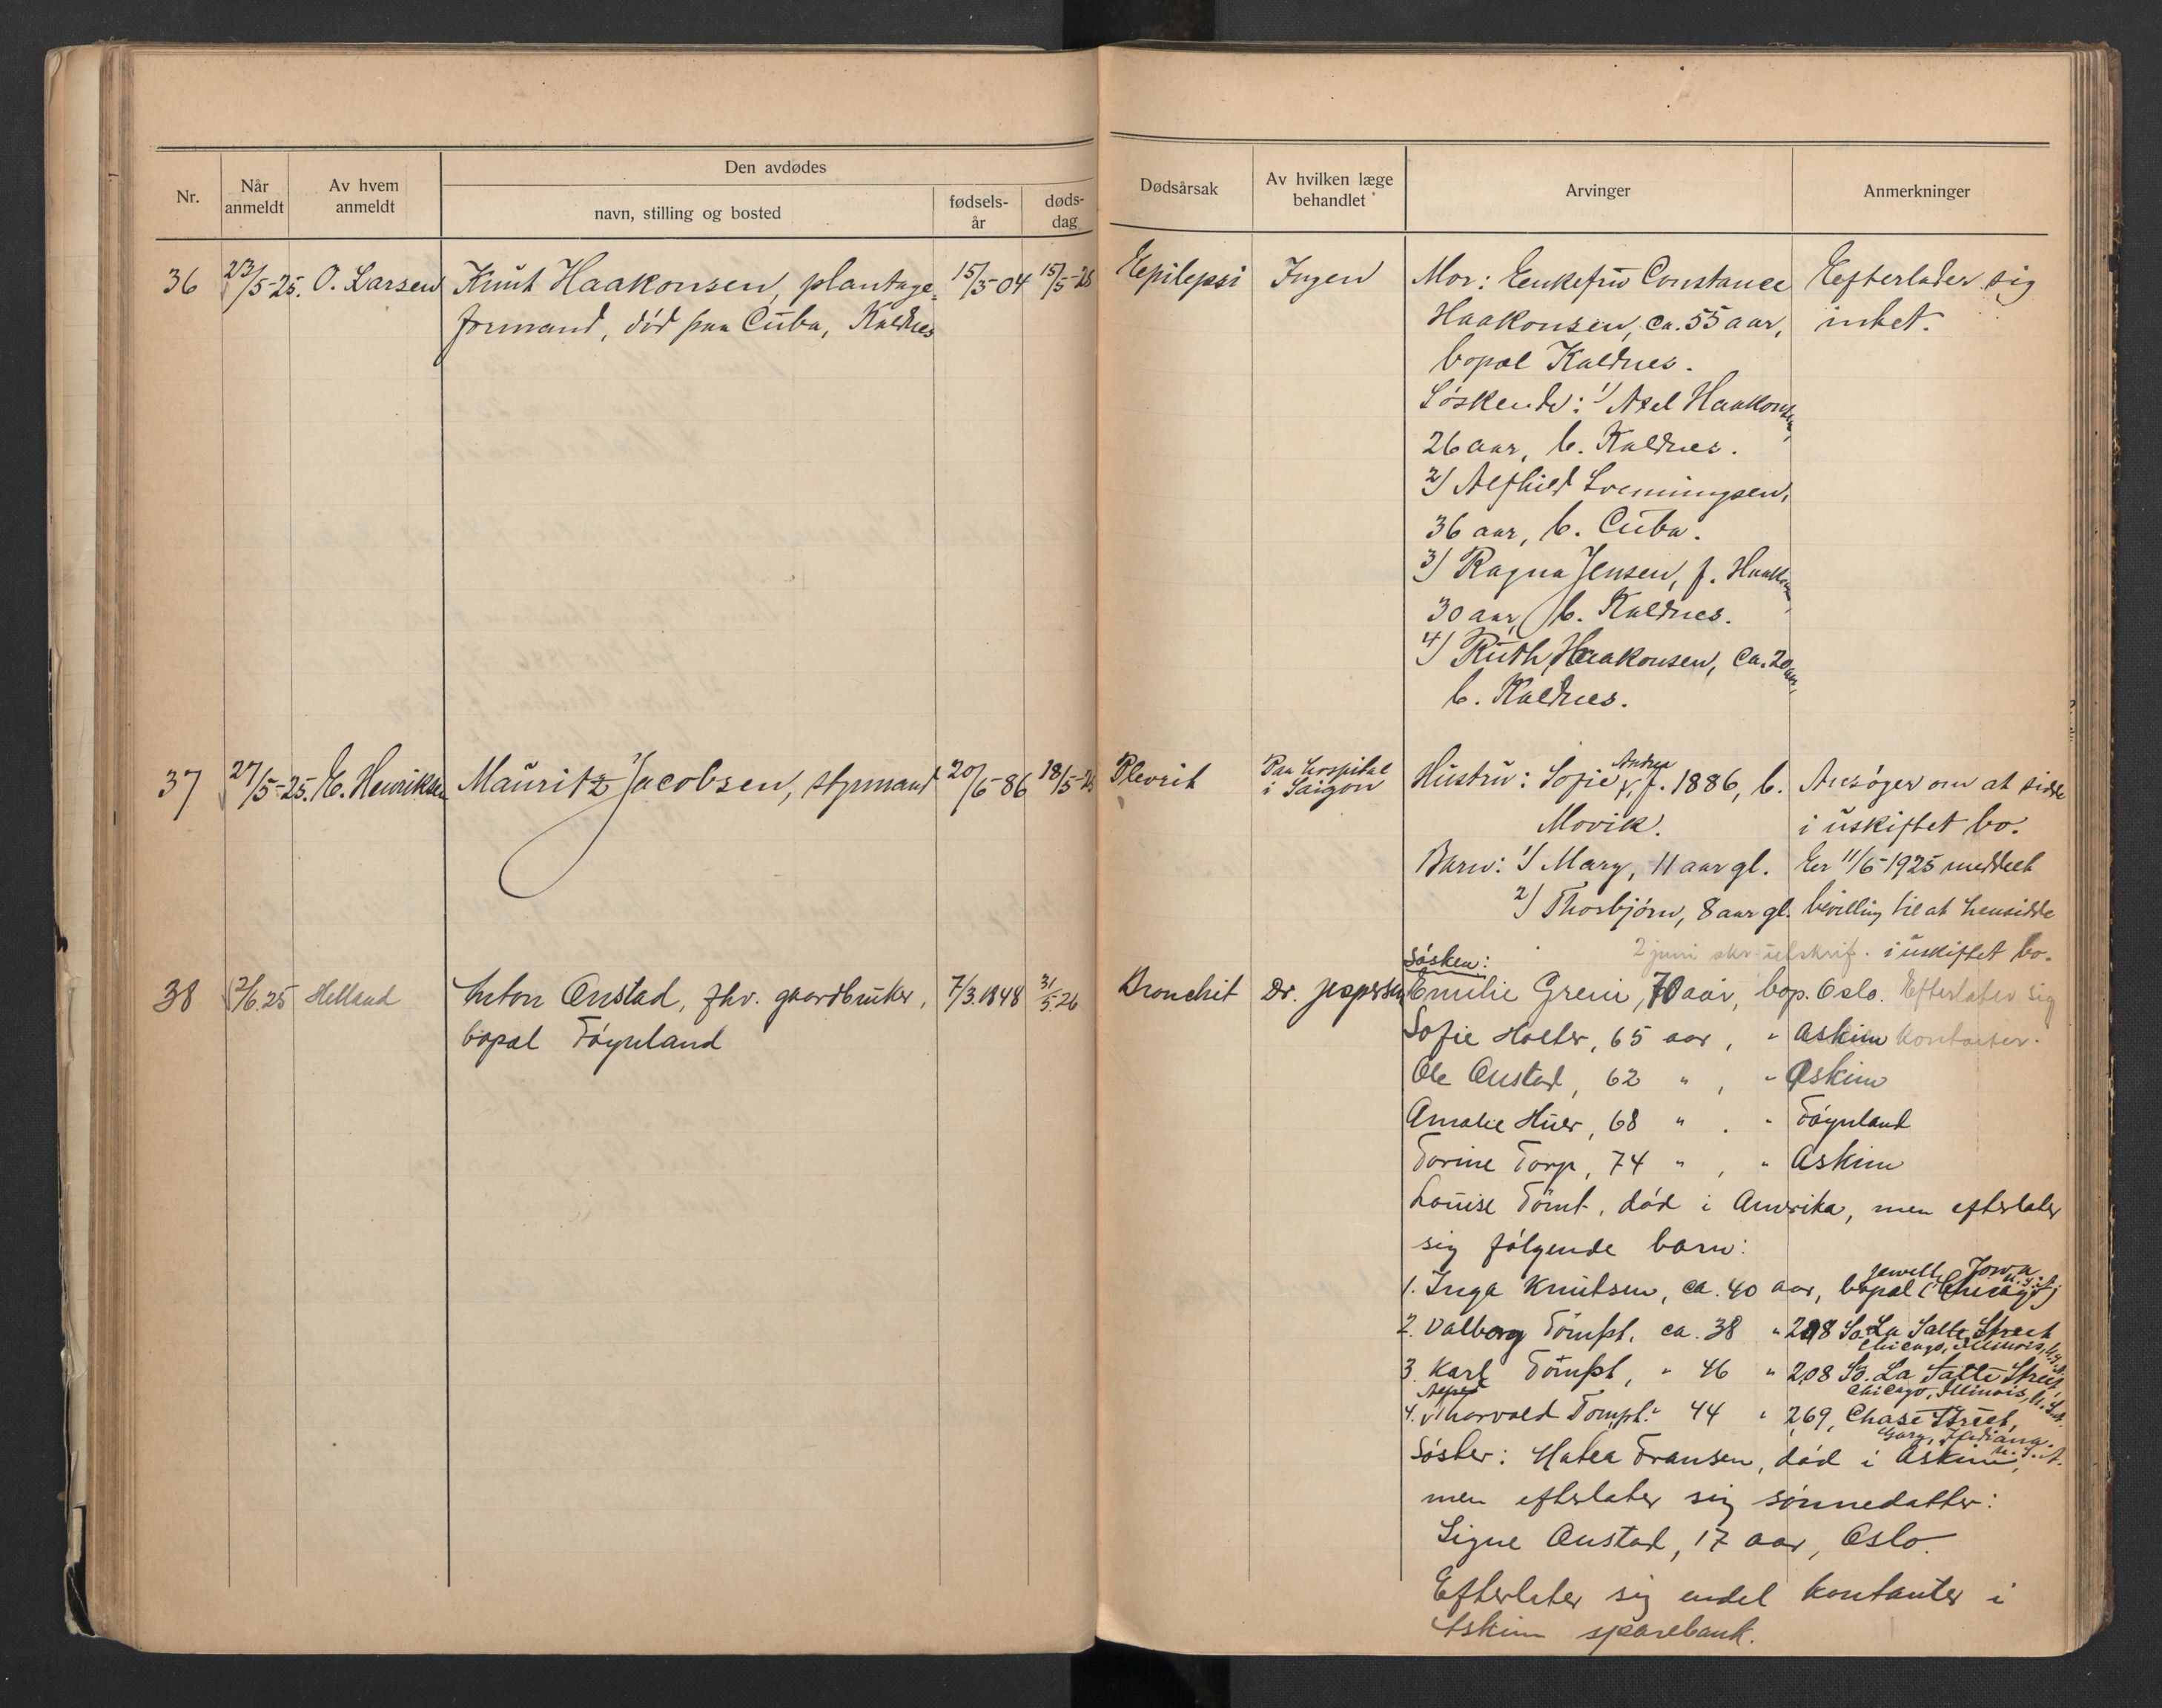 Nr.
Når anmeldt
Av hvem anmeldt
Den avdødes
navn, stilling og bosted
fødsels-år
døds-dag
Dødsårsak
Av hvilken læge behandlet
Arvinger
Anmerkninger
36 23/5-25. O. Larsen Knut Haakonsen, plantage- 15/5-04 15/5-25 Epilepsi Ingen Mor: Enkefru Constance Efterlader sig
formand, død paa Cuba, Kaldnes Haakonsen, ca. 55 aar, intet.
bopæl Kaldnes.
Søskende: 1) Axel Haakonsen,
26 aar, b. Kaldnes.
2) Alfhild
36 aar, b. Cuba.
3) Ragna Jensen, f. Haakonsen,
30 aar, b. Kaldnes.
4) Ruth Haakonsen, ca. 20 aar,
b. Kaldnes.
37 27/5-25. E. Henriksen Mauritz Jacobsen, styrmand 20/6-86 18/5-25 Plevrit Paa hospital i Saigon Hustru: Sofie Andrea, f. 1886, b. Ansøger om at sidde
Movik. i uskiftet bo.
Barn: 1) Mary, 11 aar gl. Er 11/6-1925 meddelt
2) Thorbjørn, 8 aar gl. bevilling til at hensidde
2 juni skr. utskrift. i uskiftet bo.
Søsken:
38 2/6.25 Helland Anton Onstad, fhv. gaardbruker, 7/3.1848 31/5.26 Bronchit Dr. Jespersen Emilie Greni, 70 aar, bop. Oslo. Efterlater sig
bopæl Føynland Sofie Holter, 65 aar, " Askim kontanter.
Ole Onstad, 62 " , " Askim
Amalie Huer, 68 " . " Føynland
Torine Torp, 74 " , " Askim
Louise Tømt, død i Amerika, men efterlater
sig følgende barn:
1. Inga Knutsen, ca. 40 aar, bopæl (Chicago) Jewell, Iowa U.S.A.
2. Valborg Tømpt, ca. 38 " 208 So. La Salle Street
Chicago, Illinois, U.S.A.
3. Karl Tømpt, " 46 " 208 So. La Salle Street,
Chicago, Illinois, U.S.A.
4. Thorvald Tompt " 44 " 269, Chase Street,
Gary, Indiana. U.S.A.
Søster: Matea Fransen, død i Askim,
men efterlater sig sønnedatter:
Signe Onstad, 17 aar, Oslo.
Efterlater sig endel kontanter i
Askim sparebank.